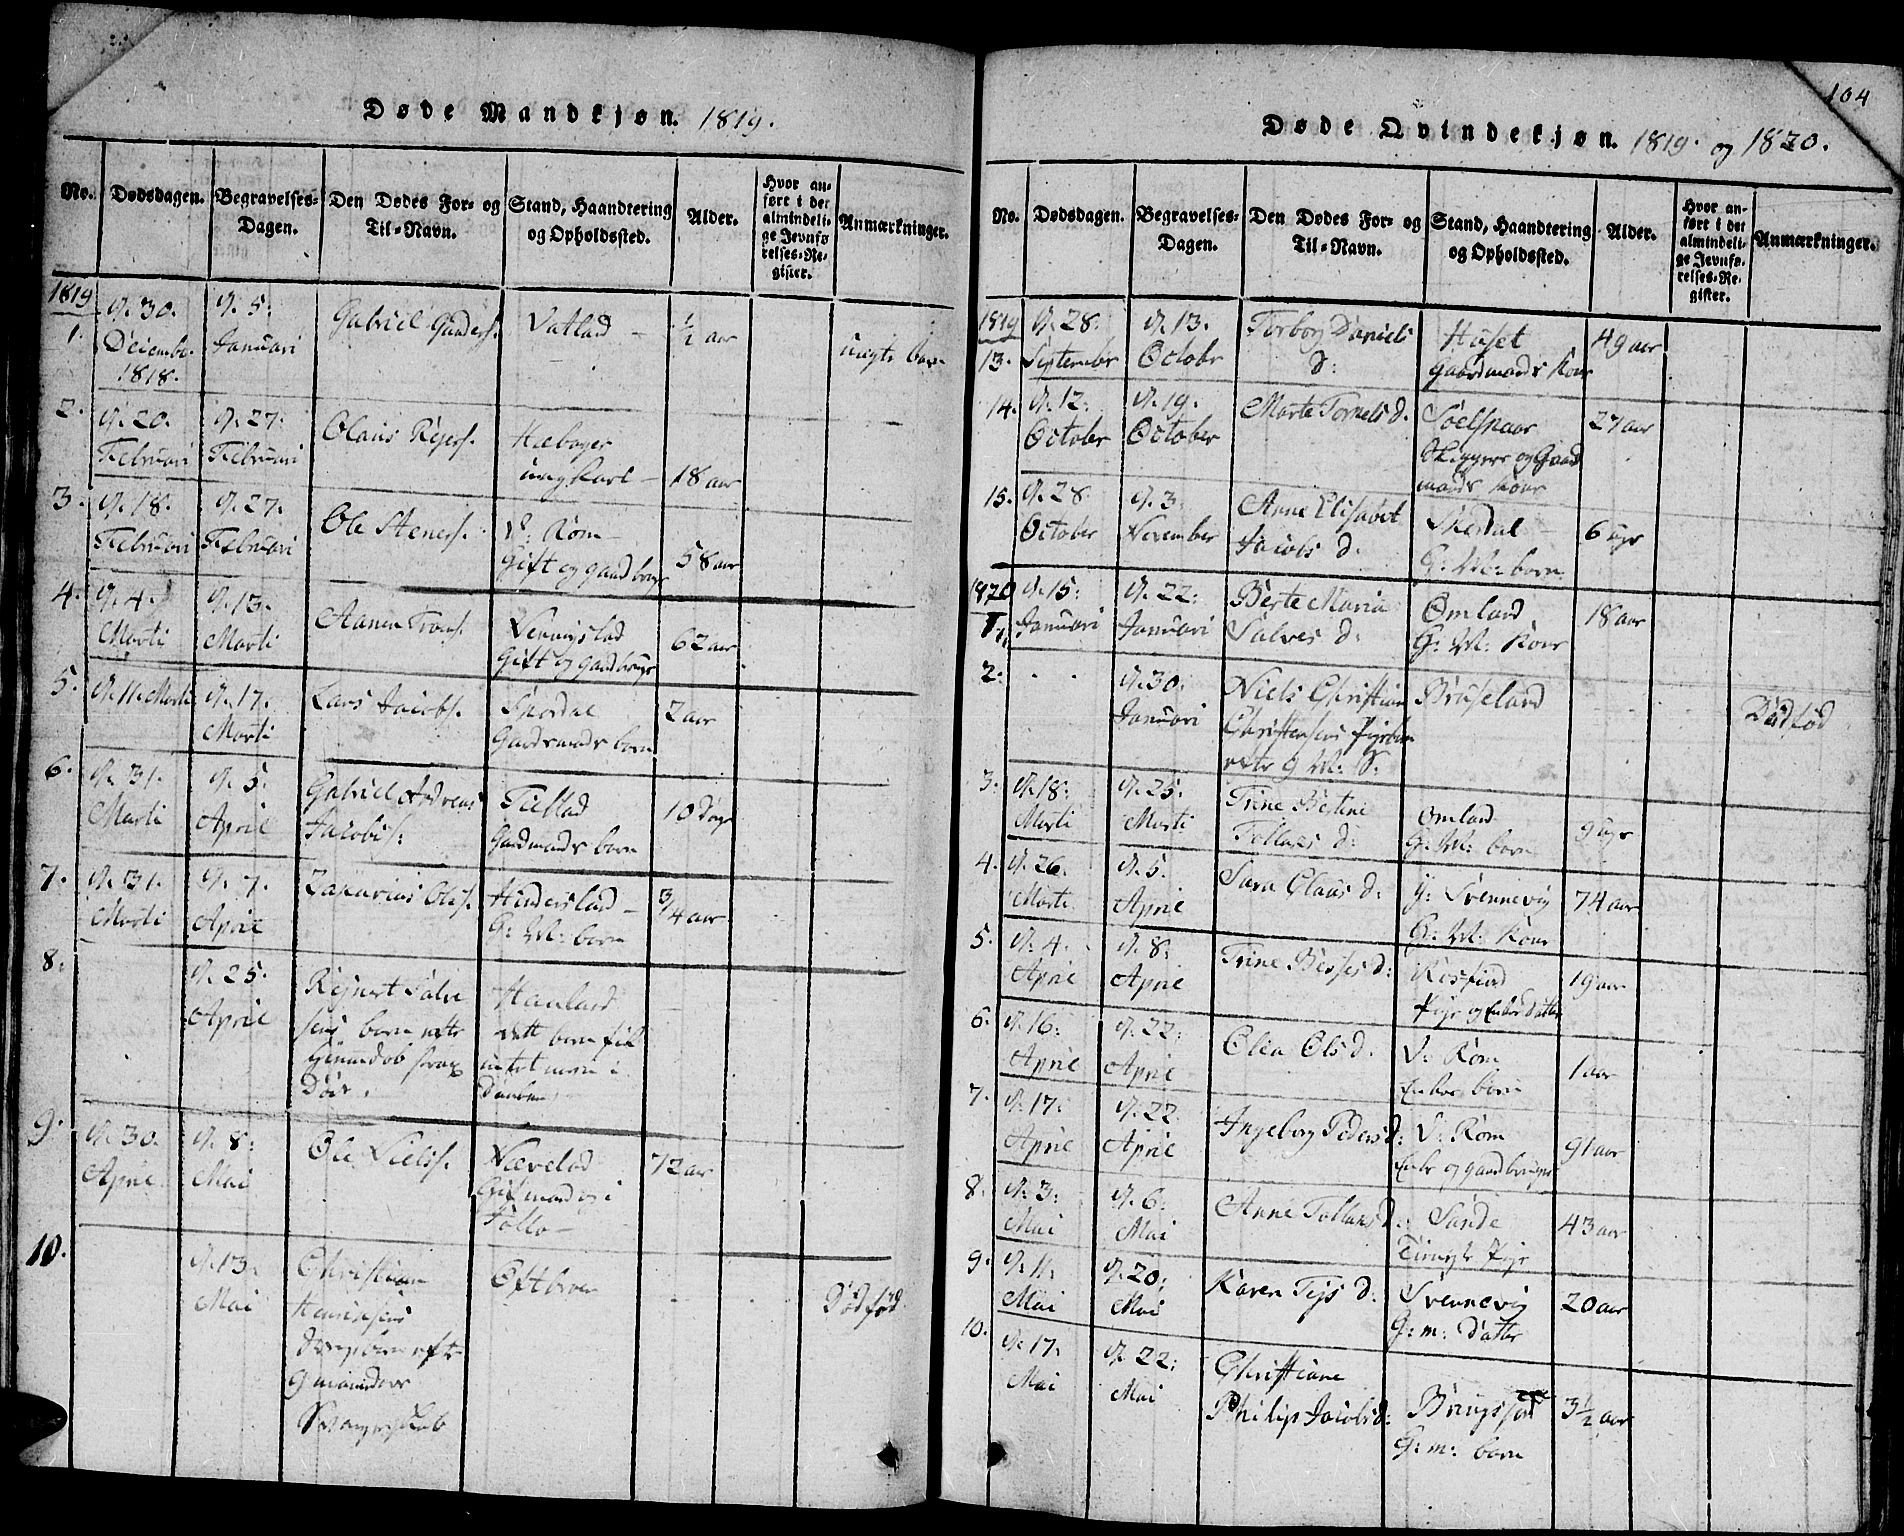 Døde Mandkjøn. 1819.
No.
Dødsdagen.
Begravelses-
Dagen.
Den Dødes For- og
Til-Navn.
Stand, Haandtering
og Opholdssted.
Alder.
Hvor an-
ført i det
almindeli-
ge Jevnfø
relses-Re-
gister.
Anmærkninger.
1819
1.
d. 30.
Decembr.
1818.
d. 5.
Januari
Gabriel Gunders.
Vatlad
1/2 aar
uægte barn
2.
d. 20.
Februari
d. 27.
Februari
Olaus Rejers.
Hæbager
ungkarl
18 aar
3.
d. 18.
Februari
d. 27.
Februari
Ole Steners.
V: Røm
Gift og gaardbrug
58 aar
4.
d. 4.
Marti
d. 13.
Marti
Aanen Trons.
Vennistad
Gift og gaardbrug
62 aar
5.
d. 11. Marti
d. 17.
Marti
Lars Jacobs.
Spordal
Gaardmands barn
2 aar
6.
d. 31.
Marti
d. 5.
April
Gabriel Andreas
Jacobs.
Tiellad
Gaardmands barn
10 Dage
7.
d. 31.
Marti
d. 7.
April
Zakarias Oles.
Hinderslad
G: M: barn
3/4 aar
8.
d. 25.
April
Rejnert Salve
sens barn efter
hjemmedob strax
Døde.
Haaland
dette barn fik
intet navn i
Daaben
9.
d. 30.
April
d. 8.
Mai
Ole Nielss.
Nævelad
Giftmand og i
Follo
72 aar
10.
d. 13.
Mai
Christian
Henriksens
Drengebarn efter
9 maaneders
Svangerskab
Oftebroe
Dødfød
104
Døde Qvindekjøn. 1819. og 1820.
No.
Dødsdagen.
Begravelses-
Dagen.
Den Dødes For- og
Til-Navn.
Stand, Haandtering
og Opholdssted.
Alder.
Hvor an-
ført i det
almindeli-
ge Jevnfø-
relses-Re-
gister.
Anmærkninger.
1819
13.
d. 28.
Septembr
d. 13.
Octobr
Torbor Daniels
d:
Huset
gaardmands Kone
49 aar
14.
d. 12.
October
d. 19.
October
Marte Tornels d.
Soelspaar
Skipper og Gaard
mands Kone
27 aar
15.
d. 28.
October
d. 3.
November
Anne Elisabet
Jacobs d.
Skerdal
G: M: barn
6 uger
1820
1.
d. 15.
Januari
d. 22.
Januari
Berte Maria
Salves d:
Omland
G: M: Kone
18 aar
2.
d. 30.
Januari
Niels Christian
Christensens Pigebarn
efter 9 M: S:
Bruseland
Dødfød
3.
d. 18.
Marti
d. 25.
Marti
Trine Bertine
Tollaks d:
Omland
G: M: barn
9 uger
4.
d. 26.
Marti
d. 5.
April
Sara Claus d.
y: Svennevig
G: M: Kone
74 aar
5.
d. 4.
April
d. 8.
April
Trine Besses d:
Rosfiord
Pige og Enkes datter
19 aar
6.
d. 16.
April
d. 22.
April
Olea Ols d.
V: Røm
Enkes barn
1 aar
7.
d. 17.
April
d. 22.
April
Ingeborg Peders d:
V: Røm
Enke og gaardbruger
91 aar
8.
d. 3.
Mai
d. 6.
Mai
Anne Tollaks d.
Sande
Tieneste Pige
43 aar
9.
d. 11.
Mai
d. 20.
Mai
Karen Tejs d:
Svennevig
G: m: datter
20 aar
10.
d. 17.
Mai
d. 22.
Mai
Christiane
Philip Jacobs d:
Bringsjord
G: m: barn
3 1/2 aar